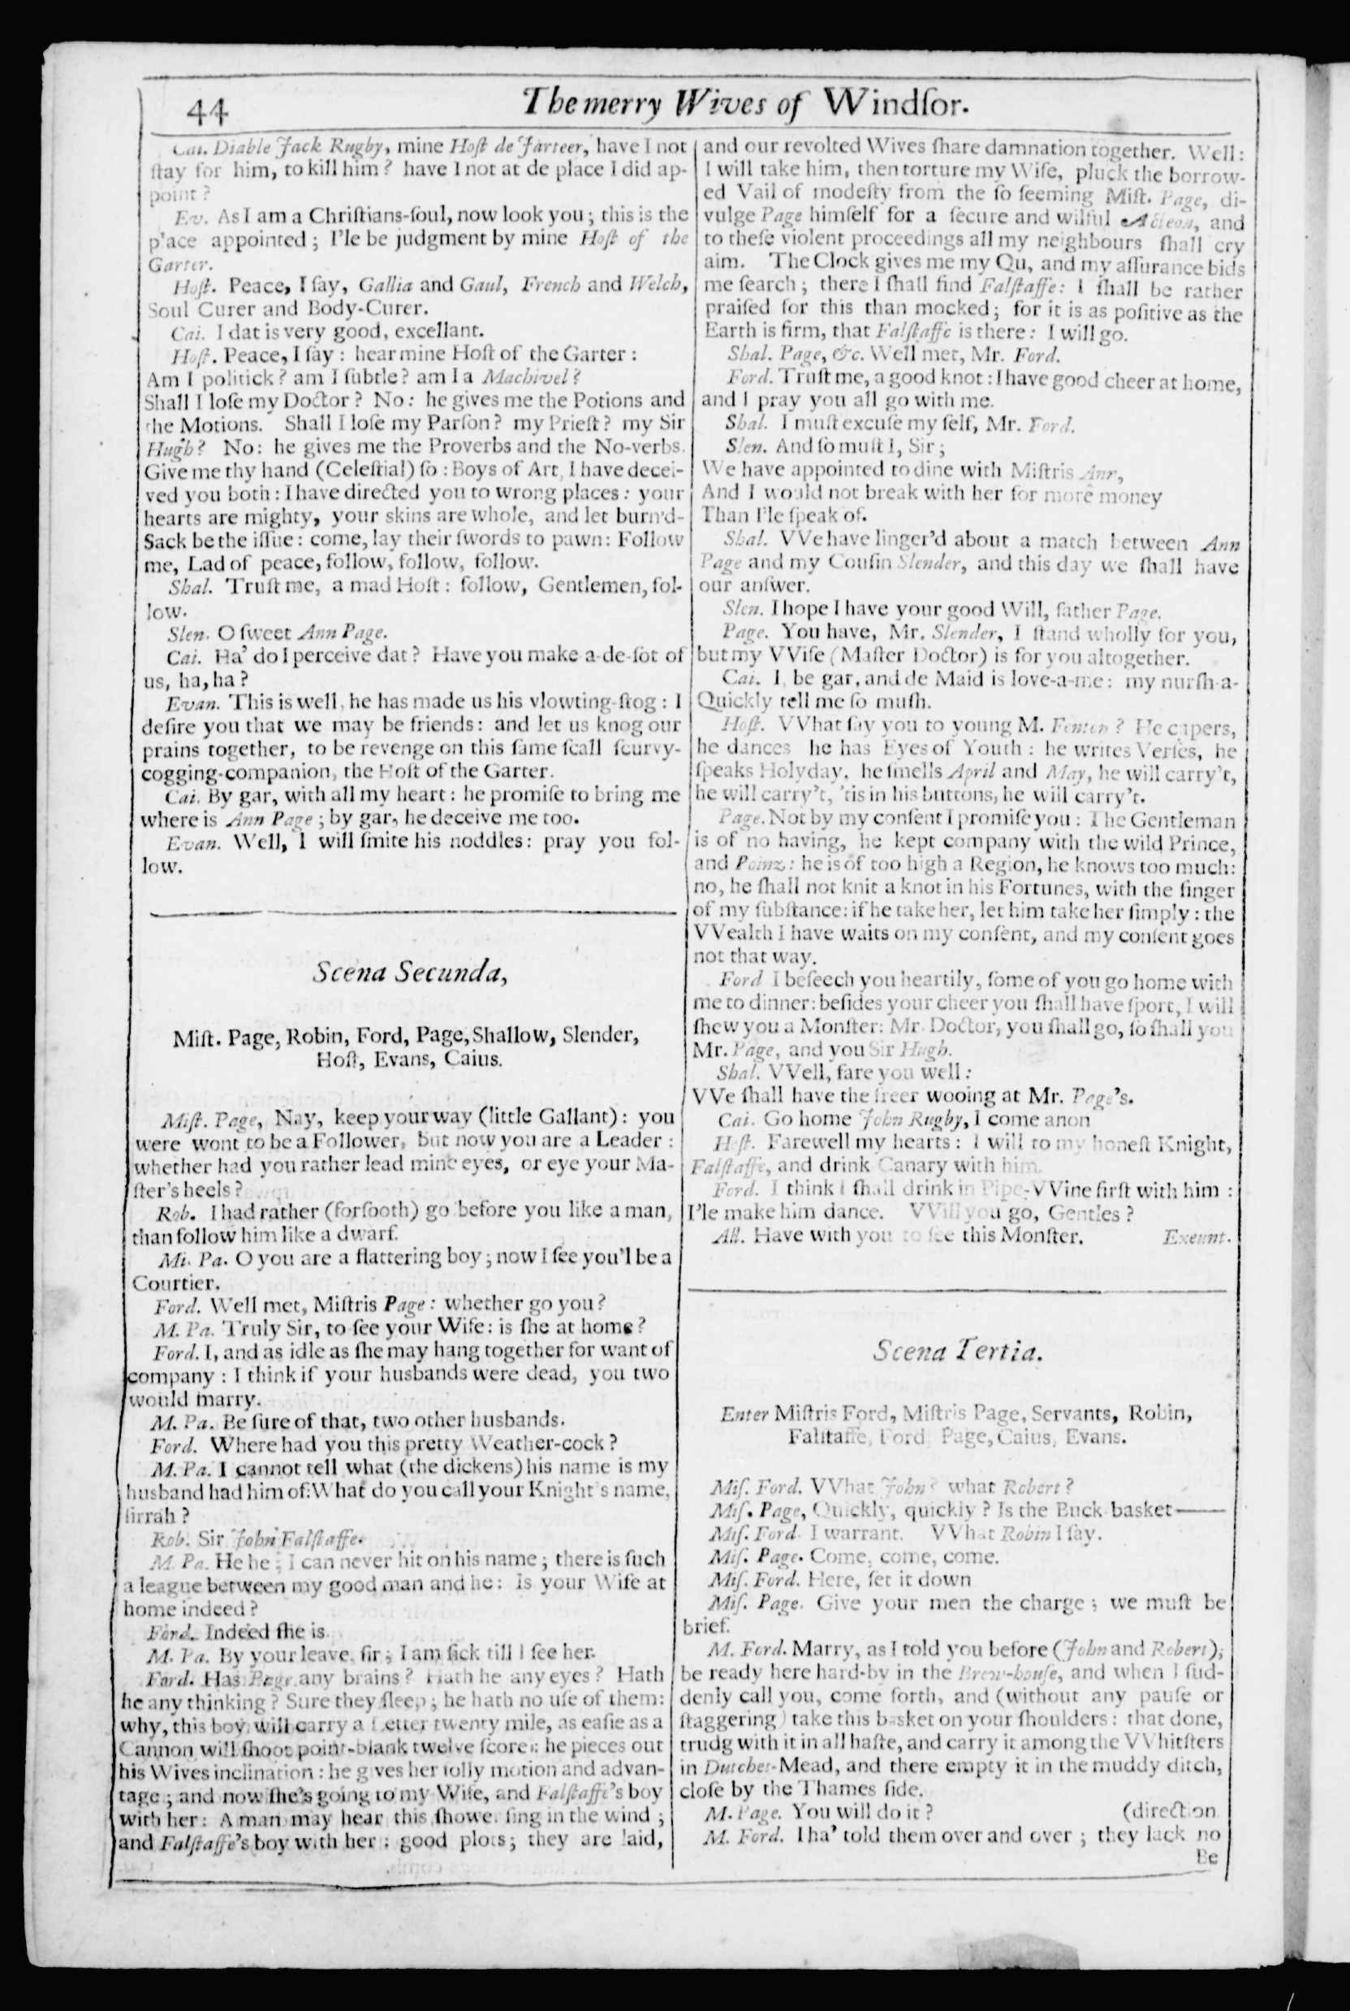 44
The merry Wives of Windſor.
Cai. Diable Jack Rugby, mine Hoſt de Jarteer, have I not
ſtay for him, to kill him? have I not at de place I did ap-
point?
Ev. As I am a Chriſtians-ſoul, now look you; this is the
place appointed; I'le be judgment by mine Hoſt of the
Garter.
Hoſt. Peace, I ſay, Gallia and Gaul, French and Welch,
Soul Curer and Body-Curer.
Cai. I dat is very good, excellant.
Hoſt. Peace, I ſay: hear mine Hoſt of the Garter:
Am I politick? am I ſubtle? am I a Machivel?
Shall I loſe my Doctor? No: he gives me the Potions and
the Motions. Shall I loſe my Parſon? my Prieſt? my Sir
Hugh? No: he gives me the Proverbs and the No-verbs.
Give me thy hand (Celeſtial) ſo: Boys of Art, I have decei-
ved you both: I have directed you to wrong places: your
hearts are mighty, your skins are whole, and let burn'd-
Sack be the iſſue: come, lay their ſwords to pawn: Follow
me, Lad of peace, follow, follow, follow.
Shal. Truſt me, a mad Hoſt: follow, Gentlemen, fol-
low.
Slen. O ſweet Ann Page.
Cai. Ha' do I perceive dat? Have you make a-de-ſot of
us, ha, ha?
Evan. This is well, he has made us his vlowting-ſtog: I
deſire you that we may be friends: and let us knog our
prains together, to be revenge on this ſame ſcall ſcurvy-
cogging-companion, the Hoſt of the Garter.
Cai. By gar, with all my heart: he promiſe to bring me
where is Ann Page; by gar, he deceive me too.
Evan. Well, I will ſmite his noddles: pray you fol-
low.
Scena Secunda,
Miſt. Page, Robin, Ford, Page, Shallow, Slender,
Hoſt, Evans, Caius.
Miſt. Page, Nay, keep your way (little Gallant): you
were wont to be a Follower, but now you are a Leader:
whether had you rather lead mine eyes, or eye your Ma-
ſter's heels?
Rob. I had rather (forſooth) go before you like a man,
than follow him like a dwarf.
Mi. Pa. O you are a flattering boy; now I ſee you'l be a
Courtier.
Ford. Well met, Miſtris Page: whether go you?
M. Pa. Truly Sir, to ſee your Wife: is ſhe at home?
Ford. I, and as idle as ſhe may hang together for want of
company: I think if your husbands were dead, you two
would marry.
M. Pa. Be ſure of that, two other husbands.
Ford. Where had you this pretty Weather-cock?
M. Pa. I cannot tell what (the dickens) his name is my
husband had him of: What do you call your Knight's name,
ſirrah?
Rob. Sir John Falſtaffe.
M. Pa. He he; I can never hit on his name; there is ſuch
a league between my good man and he: Is your Wife at
home indeed?
Ford. Indeed ſhe is.
M. Pa. By your leave, ſir; I am ſick till I ſee her.
Ford. Has Page any brains? Hath he any eyes? Hath
he any thinking? Sure they ſleep; he hath no uſe of them:
why, this boy will carry a Letter twenty mile, as eaſie as a
Cannon will ſhoot point-blank twelve ſcore: he pieces out
his Wives inclination: he gives her folly motion and advan-
tage; and now ſhe's going to my Wife, and Falſtaffe's boy
with her: A man may hear this ſhowe. ſing in the wind;
and Falſtaffe's boy with her: good plots; they are laid,
and our revolted Wives ſhare damnation together. Well:
I will take him, then torture my Wife, pluck the borrow-
ed Vail of modeſty from the ſo ſeeming Miſt. Page, di-
vulge Page himſelf for a ſecure and wilful Acteon, and
to theſe violent proceedings all my neighbours ſhall cry
aim. The Clock gives me my Qu, and my aſſurance bids
me ſearch; there I ſhall find Falſtaffe: I ſhall be rather
praiſed for this than mocked; for it is as poſitive as the
Earth is firm, that Falſtaffe is there: I will go.
Shal. Page, &c. Well met, Mr. Ford.
Ford. Truſt me, a good knot: I have good cheer at home,
and I pray you all go with me.
Shal. I muſt excuſe my ſelf, Mr. Ford.
Slen. And ſo muſt I, Sir;
We have appointed to dine with Miſtris Ann,
And I would not break with her for more money
Than I'le ſpeak of.
Shal. VVe have linger'd about a match between Ann
Page and my Couſin Slender, and this day we ſhall have
our anſwer.
Slen. I hope I have your good Will, father Page.
Page. You have, Mr. Slender, I ſtand wholly for you,
but my VVife (Maſter Doctor) is for you altogether.
Cai. I, be gar, and de Maid is love-a-me: my nurſh-a-
Quickly tell me ſo muſh.
Hoſt. VVhat ſay you to young M. Fenton? He capers,
he dances he has Eyes of Youth: he writes Verſes, he
ſpeaks Holyday, he ſmells April and May, he will carry't,
he will carry't, 'tis in his buttons, he will carry't.
Page. Not by my conſent I promiſe you: The Gentleman
is of no having, he kept company with the wild Prince,
and Poinz: he is of too high a Region, he knows too much:
no, he ſhall not knit a knot in his Fortunes, with the finger
of my ſubſtance: if he take her, let him take her ſimply: the
VVealth I have waits on my conſent, and my conſent goes
not that way.
Ford I beſeech you heartily, ſome of you go home with
me to dinner: beſides your cheer you ſhall have ſport, I will
ſhew you a Monſter: Mr. Doctor, you ſhall go, ſo ſhall you
Mr. Page, and you Sir Hugh.
Shal. VVell, fare you well:
VVe ſhall have the freer wooing at Mr. Page's.
Cai. Go home John Rugby, I come anon
Hoſt. Farewell my hearts: I will to my honeſt Knight,
Falſtaffe, and drink Canary with him.
Ford. I think I ſhall drink in Pipe-VVine firſt with him:
I'le make him dance. VVill you go, Gentles?
All. Have with you to ſee this Monſter. Exeunt.
Scena Tertia.
Enter Miſtris Ford, Miſtris Page, Servants, Robin,
Falſtaffe, Ford, Page, Caius, Evans.
Miſ. Ford. VVhat John? what Robert?
Miſ. Page, Quickly, quickly? Is the Buck-basket——
Miſ. Ford. I warrant. VVhat Robin I ſay.
Miſ. Page. Come, come, come.
Miſ. Ford. Here, ſet it down
Miſ. Page. Give your men the charge; we muſt be
brief.
M. Ford. Marry, as I told you before (John and Robert),
be ready here hard-by in the Brew-houſe, and when I ſud-
denly call you, come forth, and (without any pauſe or
ſtaggering) take this basket on your ſhoulders: that done,
trudg with it in all haſte, and carry it among the VVhitſters
in Dutchet-Mead, and there empty it in the muddy ditch,
cloſe by the Thames ſide.
M. Page. You will do it? (direction
M. Ford. I ha' told them over and over; they lack no
Be